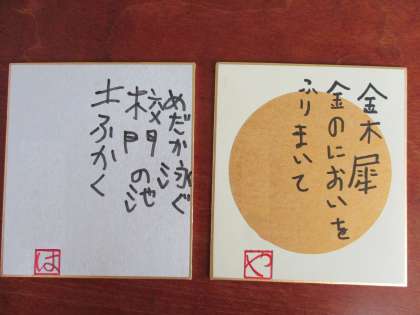 金木犀
金のにおいを
ふりまいて
や
めだか泳ぐ
校門の池
土ふかく
は